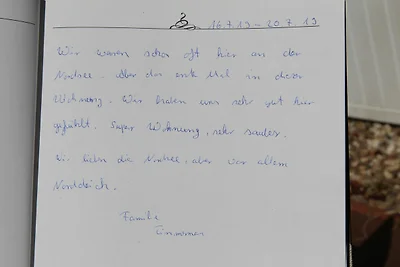 16.7.19 - 20.7.19
Wir waren schon oft hier an der
Nordsee. Aber das erste Mal in dieser
Wohnung. Wir haben uns sehr gut hier
gefühlt. Super Wohnung, sehr sauber.
Wir lieben die Nordsee, aber vor allem
Norddeich.
Familie
Zimmermann